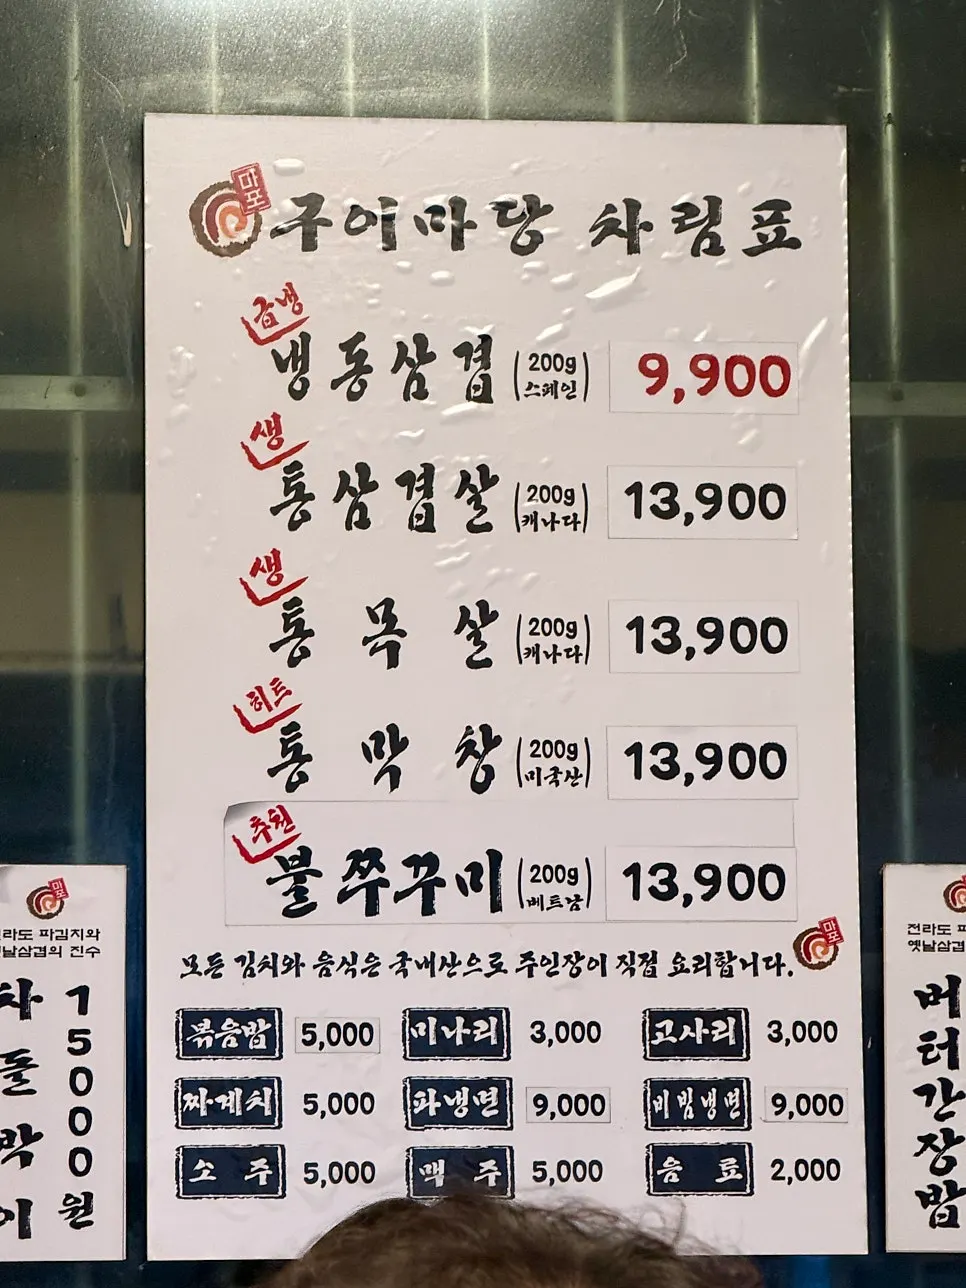 마포
구이마당 차림표
급냉
냉동삼겹 (200g 스페인) 9,900
생
통삼겹살 (200g 캐나다) 13,900
생
통목살 (200g 캐나다) 13,900
히트
통막창 (200g 미국산) 13,900
추천
불쭈꾸미 (200g 베트남) 13,900
모든 김치와 음식은 국내산으로 주인장이 직접 요리합니다.
마포
볶음밥 5,000 미나리 3,000 고사리 3,000
짜계치 5,000 파냉면 9,000 비빔냉면 9,000
소주 5,000 맥주 5,000 음료 2,000
마포
전라도 파김치와
옛날삼겹의 진수
차돌박이
15000원
전라도 파
옛날삼겹
버터간장밥